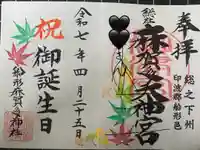 奉拝
総之下州
印旛郡船形邑
麻賀多大神宮
令和七年四月二十五日
祝
御誕生日
船形麻賀多神社